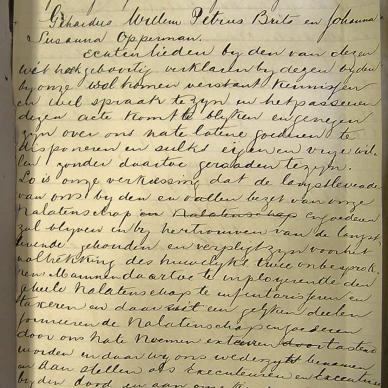 Gehardus Willem Petrus Brits en Johanna
Susanna Opperman.
Echtenlieden byden van dezen
verklaren bydezen byden
byonze volkomen verstant kennissen
en wil spraak te zyn en het passeeren
dezen acte komt te blyken en genegen
zyn over ons nate latene goederen te
disponeren en sulks eigen en vrye wil
len zonder daartoe geraaden te zyn.
So is onze verkiessing dat de langstlevende
van ons byden en vollen bezet van onze
Nalatenschap en Nalatenschap en goederen
zal blyven in by hertrouwen van de langst
levende gehouden en verpligt zyn voor het
voltrekking des huwelyks twee onbesprok
en Mannen daartoe te inployerende den
geheele Nalatenschap te infentariseeren en
taxeren en daar uit een gelyken deelen
formeerende Nalatenschap en goederen
door ons nate Noemen
worden en daar wy ons wederzyt benoemen
en dan stellen als Executeuren en Executrice
byden dood en aan